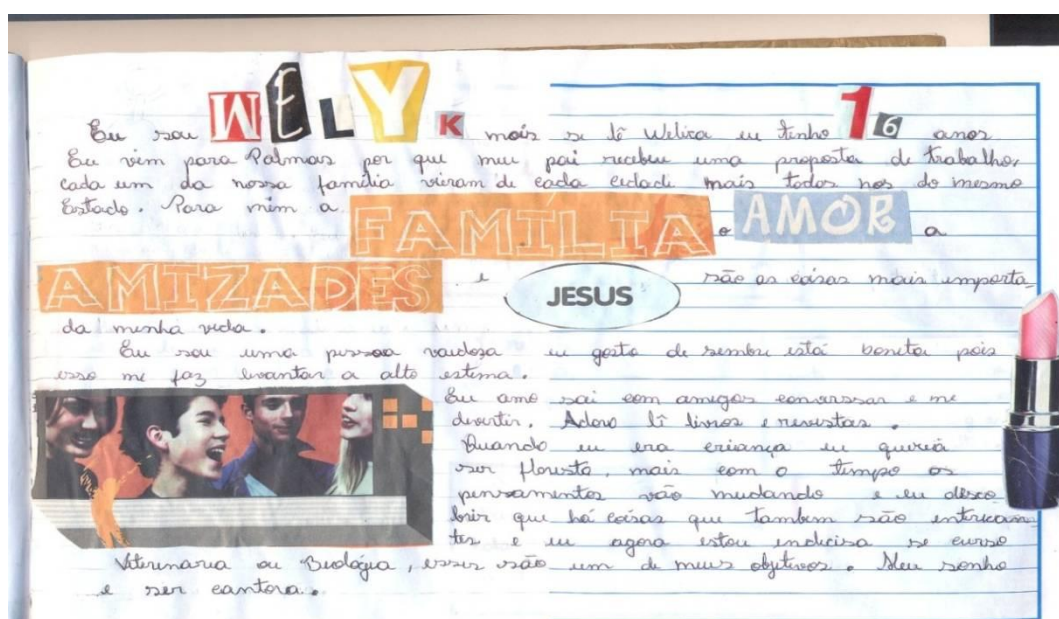 Eu sou WELYK mais se lê Weliza eu tenho 16 anos
Eu vim para Palmas por que meu pai recebeu uma proposta de trabalho,
cada um da nossa família vieram de cada cidade mais todos nos do mesmo
Estado. Para mim a FAMÍLIA o AMOR a
AMIZADES e JESUS são as coisas mais importa_
da minha vida.
Eu sou uma pessoa vaidosa eu gosto de sembre está bonita pois
esso me faz levantar a alto estima.
Eu amo sai com amigos converssar e me
divertir. Adoro lê livros e revistas.
Quando eu era criança eu queria
ser florista, mais com o tempo os
penssamentos vão mudando e eu disco
brir que há coisas que tambem são interican
tes e eu agora estou indicisa se curso
Viterinaria ou Biológia, esses são um de meus objetivos. Meu sonho
e ser cantora.